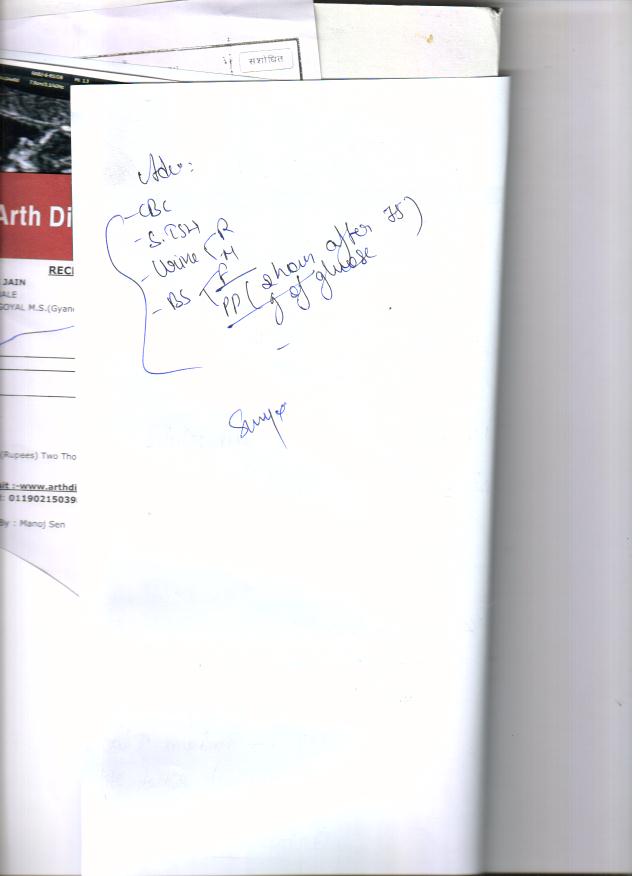 संशोधित
MI 1.3
Arth Di
RECI
JAIN
ALE
GOYAL M.S.(Gyan
(Rupees) Two Tho
it :-www.arthdi
: 01190215039
By : Manoj Sen
Adv:
- CBC
- S. TSH
- Urine < R
M
- BS < F
PP (2 hour after 75
g of glucose)